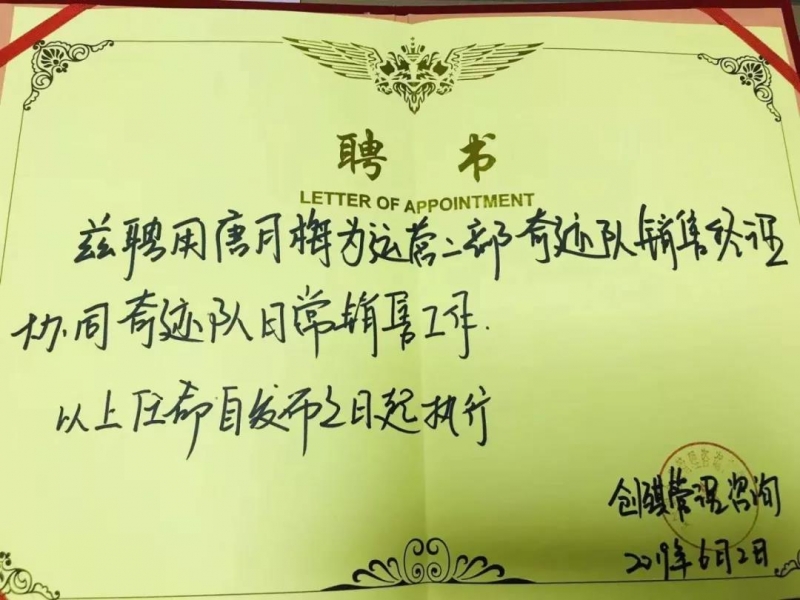 聘 书
LETTER OF APPOINTMENT
兹聘用唐月梅为运营二部奇迹队销售经理
协同奇迹队日常销售工作.
以上任命自发布之日起执行
创骐管理咨询
2019年6月2日